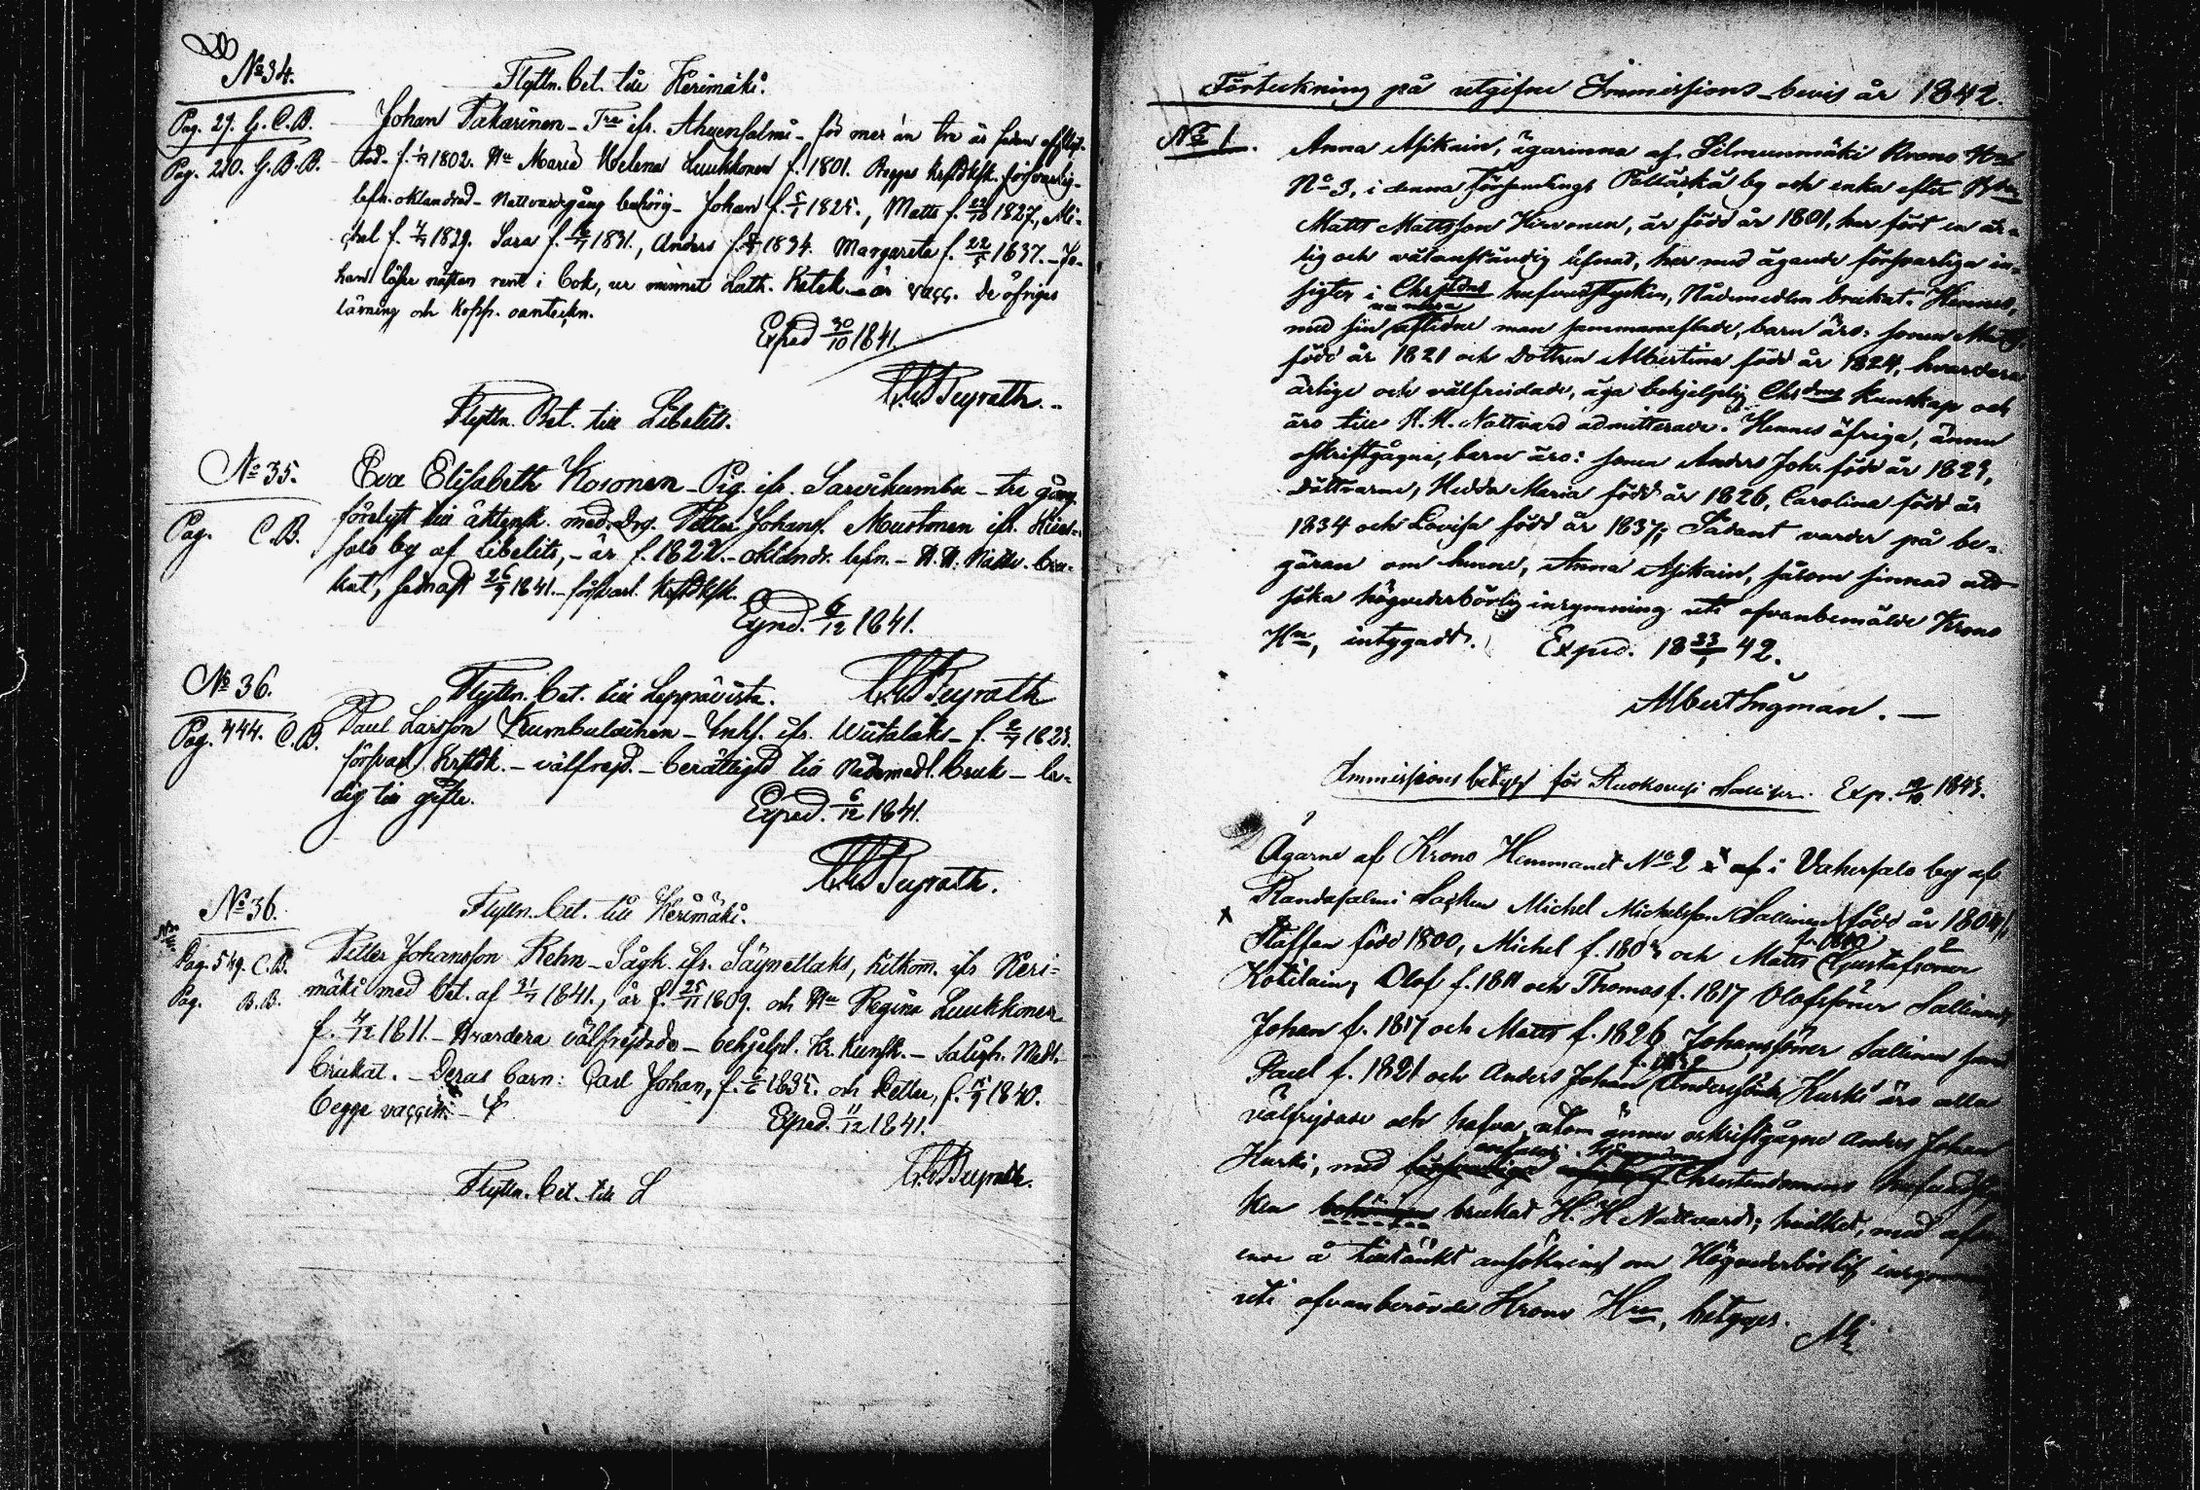 No 34.
Flyttn. bet. till Kerimäki.
Pag. 29. G. C. B.
Johan Pakarinen - Tre ifr. Ahvensalmi - för mer än tre år sedan
Pag. 210. G. B. B.
f. 1/7 1802. Hu Maria Helena Luukkonen f. 1801. Begges försvarlig.
lefn. oklandrad - Nattvardsgång behörig - Johan f. 5/1 1825., Matts f. 22/10 1827, Mi-
chel f. 1829. Sara f. 1831., Anders f. 1834. Margareta f. 22/5 1837. - Jo-
han läser nästan rent i bok, ur minnet Luth. Katek. - är vacc. De öfriges
lärning och kopp. oanteckn.
Exped 30/10 1841.
Flyttn. Bet. till Libelits.
No 35.
Eva Elisabeth Kosonen - Pig. ifr. Sarvikumbu - tre gång.
Pag. C. B.
förelyst till äktensk. med Drg. Petter Johanss. Mustonen ifr.
salo by af Libelits, - är f. 1822. - oklandr. lefn. - H. H. Nattv. bru-
kat, sednast 26/9 1841. - försvarl.
Exped. 6/12 1841.
No 36.
Flyttn. bet. till Leppävirta.
Pag. 444. C. B.
Paul Larsson Kumbulainen - Inhs. ifr. Wiitalaks - f. 1823.
försvarl. - välfrejd. - berättigad till Nådemedl. bruk - le-
dig till gifte.
Exped. 6/12 1841.
No 36.
Flyttn. bet. till Kerimäki.
Pag. 549. C. B.
Petter Johansson Rehn - Sågk. ifr. Säynetlaks, hitkom. ifr Keri-
Pag. B. B.
mäki med bet. af 1841., är f. 25/11 1809. och Hu Regina Luukkonen
f. 4/12 1811. - Hvardera välfrejdade - behjelpl. Kr. kunsk. - Saligh. Medl.
brukat. - Deras barn: Carl Johan, f. 1835. och Petter, f. 1840.
begge vaccin. -
Exped. 11/12 1841.
Flyttn. bet. till L
Förteckning på utgifne Immissions-bevis år 1842.
No 1.
Anna Asikain, ägarinna af Silmunmäki Krono Hem
No 3, i denna församlings by och enka efter
Matts Mattsson Hirvonen, är född år 1801, har fört en är-
lig och välanständig lefnad, har med ägande försvarliga in-
sigter i Chrstdns hufvudstycken, Nådemedlen brukat. Hennes,
med sin numera aflidne man sammanaflade, barn äro: sonen Matts,
född år 1821 och dottren Albertina född år 1824, hvardera
ärlige och välfrejdade, äga behjelplig Chrdoms kunskap och
äro till H. H. Nattvard admitterade. Hennes öfriga, ännu
oskriftgågna, barn äro: sonen Anders Joh. född år 1829,
döttrarne, Hedda Maria född år 1826, Carolina född år
1834 och Lovisa född år 1837; Sådant varder på be-
gäran om henne, Anna Asikain, såsom sinnad att
söka högvederbörlig inrymning uti ofvanbemälde Krono
Hn, intygadt. Exped. 18 23/1 42.
Albert Ingman. —
Immissions betyg för Ruokonen Sallinen. Exp. 1843.
Ägarne af Krono Hemmanet No 2 i Vahersalo by af
Randasalmi Socken Michel Michelsson Sallinen född år 1804,
Staffan född 1800, Michel f. 1803 och Matts f. 1810 Gustafsöner
Kotilain, Olof f. 1811 och Thomas f. 1817 Olofssöner Sallinen,
Johan f. 1817 och Matts f. 1826 Johanssöner Sallinen samt
Paul f. 1821 och Anders Johan Anderssöner Kurki äro alla
välfrejdade och hafva, utom ännu oskriftgågne Anders Johan
Kurki, med Christendomens hufvudstyc
ken brukat H. H. Nattvard; hvilket, med af
ende å tilltänkt ansökning om Högvederbörlig inrymn
uti ofvanberörde Krono Hn, betygas.